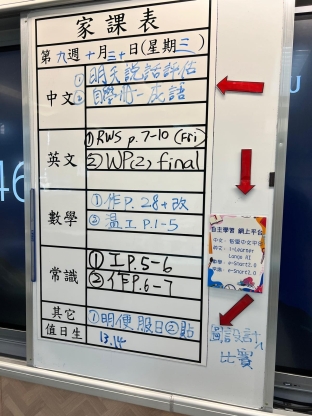 家課表
第九週十月三十日(星期三)
中文
①明天說話評估
②自學小一成語
英文
①RWS p.7-10 (Fri)
②WP(2) final
數學
①作P.28+改
②温工P.1-5
常識
①工P.5-6
②作P.6-7
其它
①明便服日②貼
值日生
13,14
自主學習 網上平台
中文:
英文: i-Learner
Lango AI
數學: e-Smart2.0
常識: e-Smart2.0
圖設計
比賽